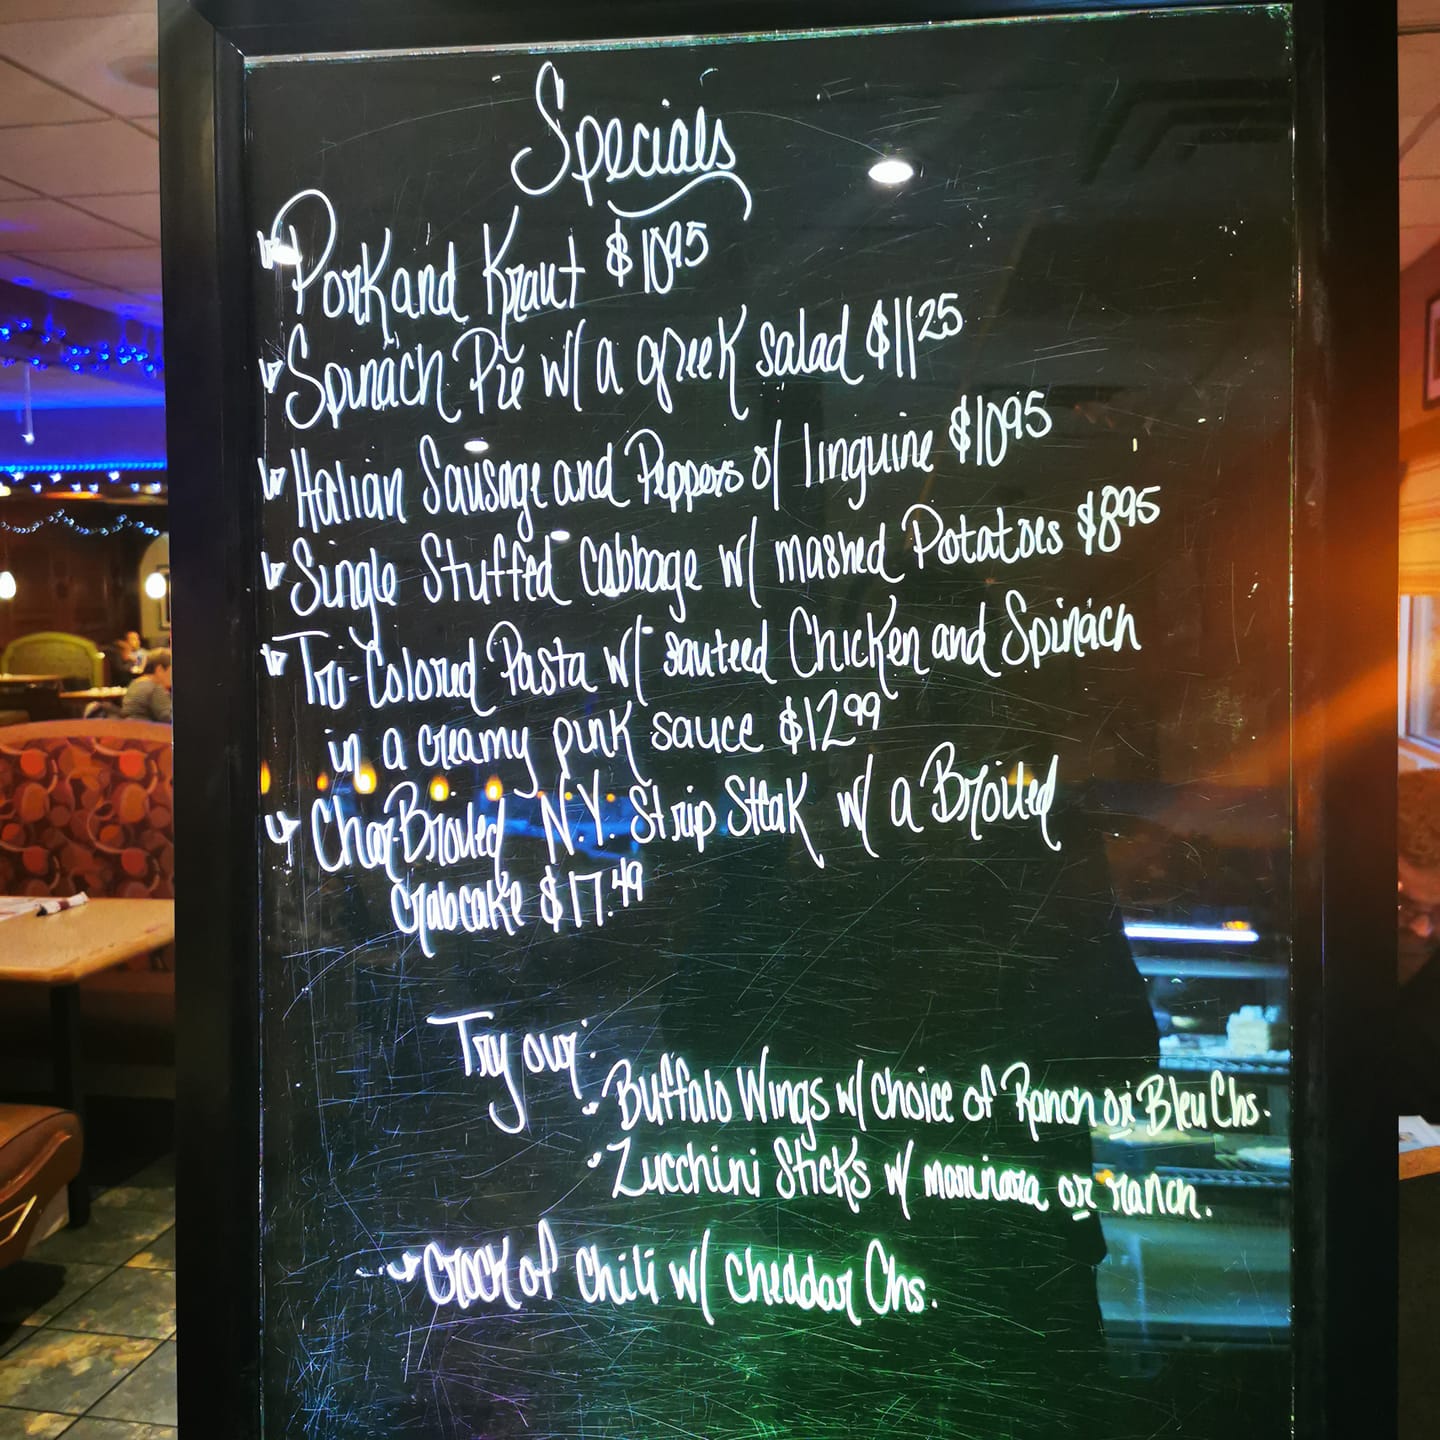 Specials
Pork and Kraut $10.95
Spinach Pie w/ a greek salad $11.25
Italian Sausage and Peppers o/ linguine $10.95
Single Stuffed Cabbage w/ mashed Potatoes $8.95
Tri-Colored Pasta w/ sauteed Chicken and Spinach
in a creamy pink sauce $12.99
Char-Broiled N.Y. Strip Steak w/ a Broiled
crabcake $17.49
Try our:
Buffalo Wings w/ choice of Ranch or Bleu Chs.
Zucchini Sticks w/ marinara or ranch.
Crock of Chili w/ cheddar Chs.